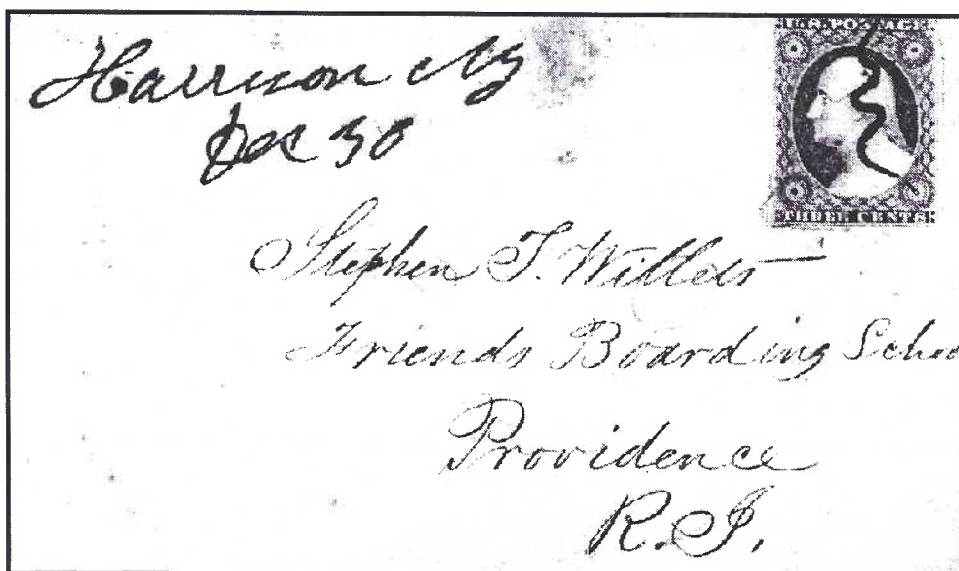 Harrison Ny
Dec 30
U.S. POSTAGE
THREE CENTS
Stephen T. Willets
Friends Boarding Schoo
Providence
R.I.